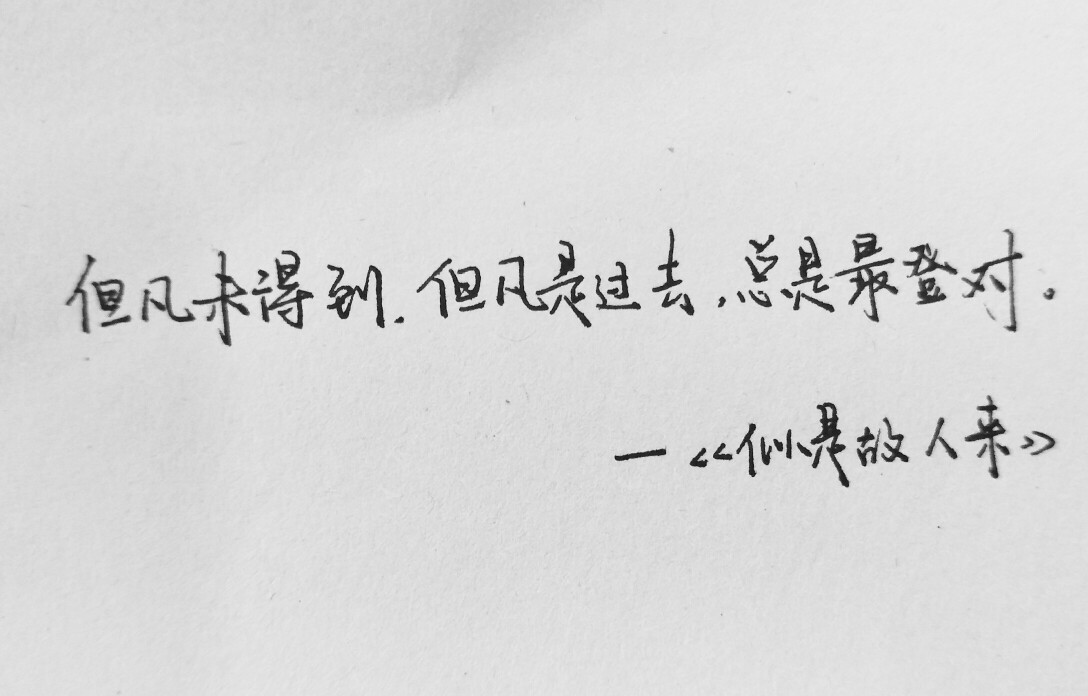 但凡未得到,但凡是过去,总是最登对。
—《似是故人来》